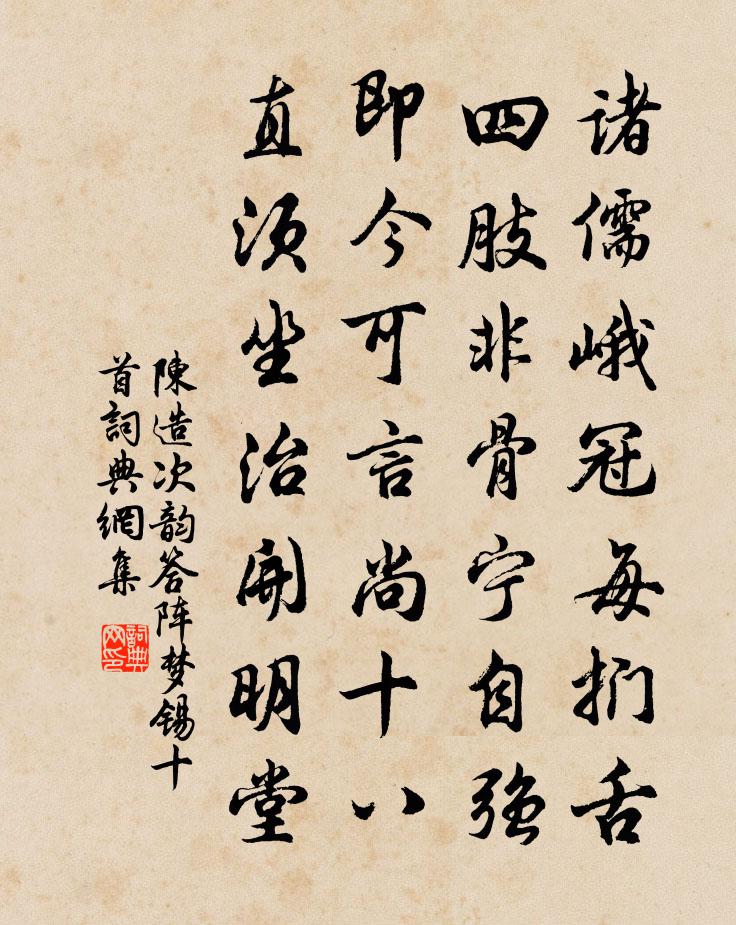 诸儒峨冠每扪舌
四肢非骨宁自强
即今可言尚十八
直须坐治开明堂
陳造次韵答阵梦锡十
首詞典網集
詞典
网印